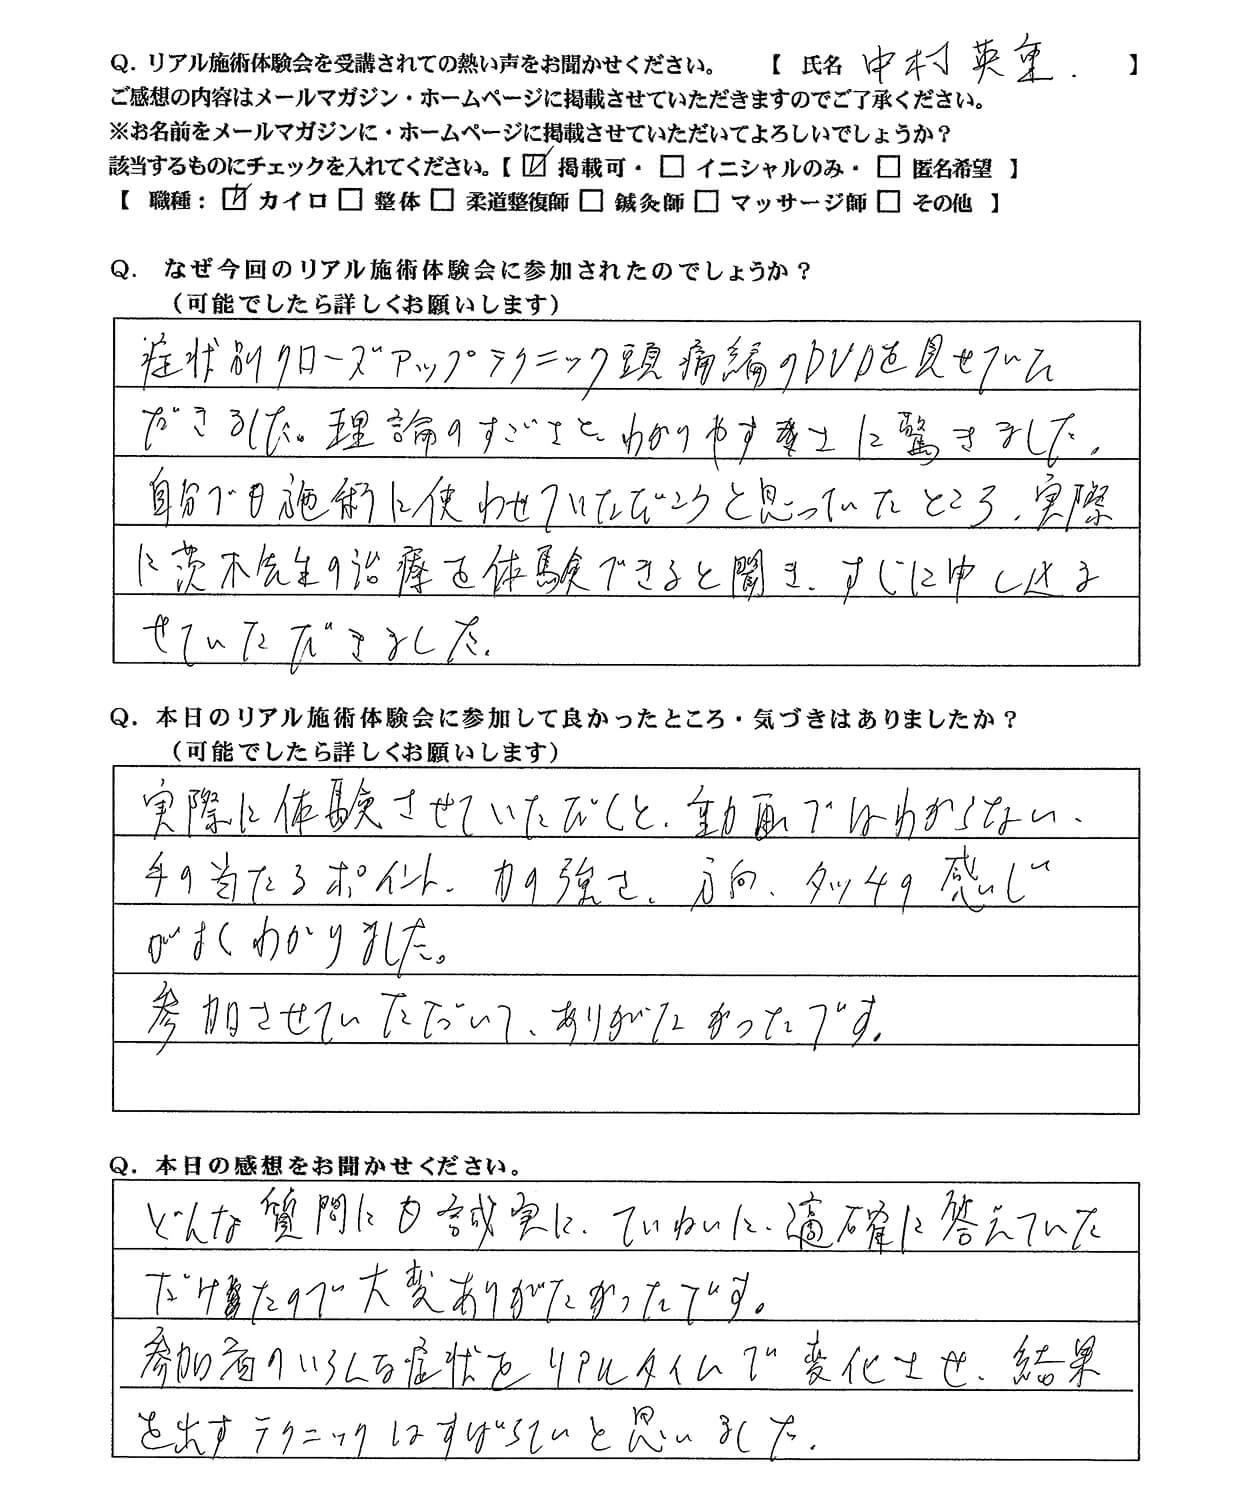 Q. リアル施術体験会を受講されての熱い声をお聞かせください。 【 氏名 中村 英里. 】
ご感想の内容はメールマガジン・ホームページに掲載させていただきますのでご了承ください。
※お名前をメールマガジンに・ホームページに掲載させていただいてよろしいでしょうか？
該当するものにチェックを入れてください。【 ☑ 掲載可・ □ イニシャルのみ・ □ 匿名希望 】
【 職種： ☑ カイロ □ 整体 □ 柔道整復師 □ 鍼灸師 □ マッサージ師 □ その他 】
Q. なぜ今回のリアル施術体験会に参加されたのでしょうか？
（可能でしたら詳しくお願いします）
症状別クローズアップテクニック頭痛編のDVDを見せていた
だきました。理論のすごさと、わかりやすさに驚きました。
自分でも施術に使わせていただこうと思っていたところ、実際
に茨木先生の治療を体験できると聞き、すぐに申し込ま
せていただきました。
Q. 本日のリアル施術体験会に参加して良かったところ・気づきはありましたか？
（可能でしたら詳しくお願いします）
実際に体験させていただくと、動画ではわからない、
手の当たるポイント、力の強さ、方向、タッチの感じ
がよくわかりました。
参加させていただいて、ありがたかったです。
Q. 本日の感想をお聞かせください。
どんな質問にも誠実に、ていねいに、適確に答えていた
だけたので大変ありがたかったです。
参加者のいろんな症状をリアルタイムで変化させ、結果
を出すテクニックはすばらしいと思いました。